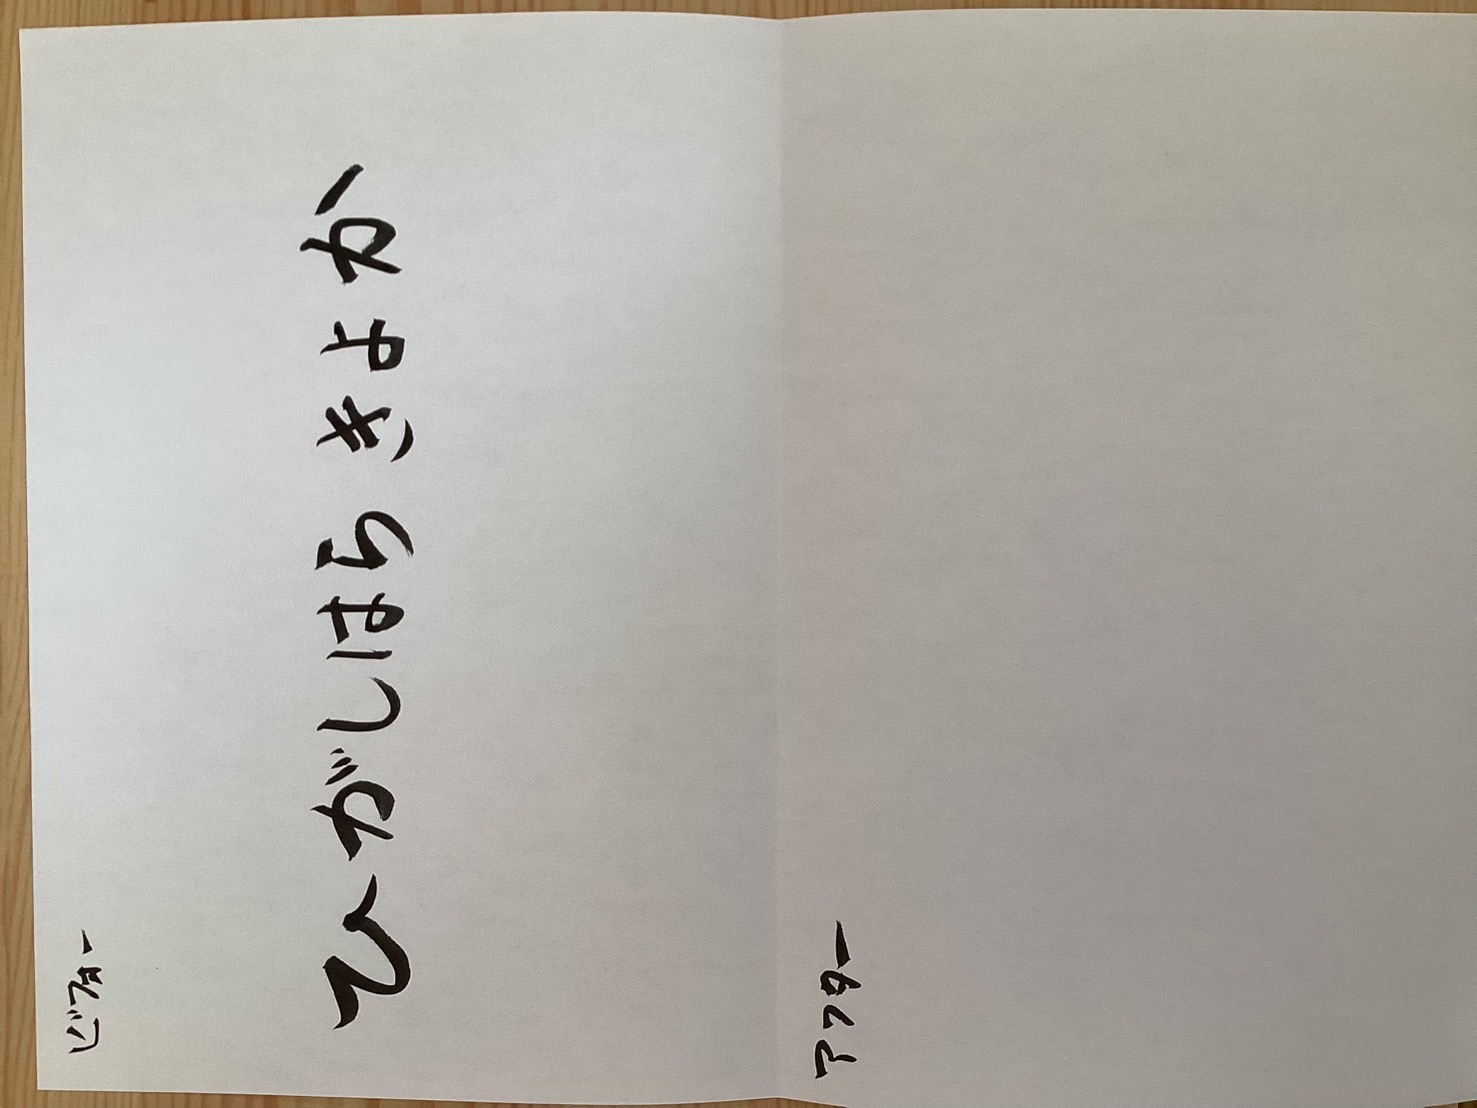 ビフォー
ひがしはら きよか
アフター